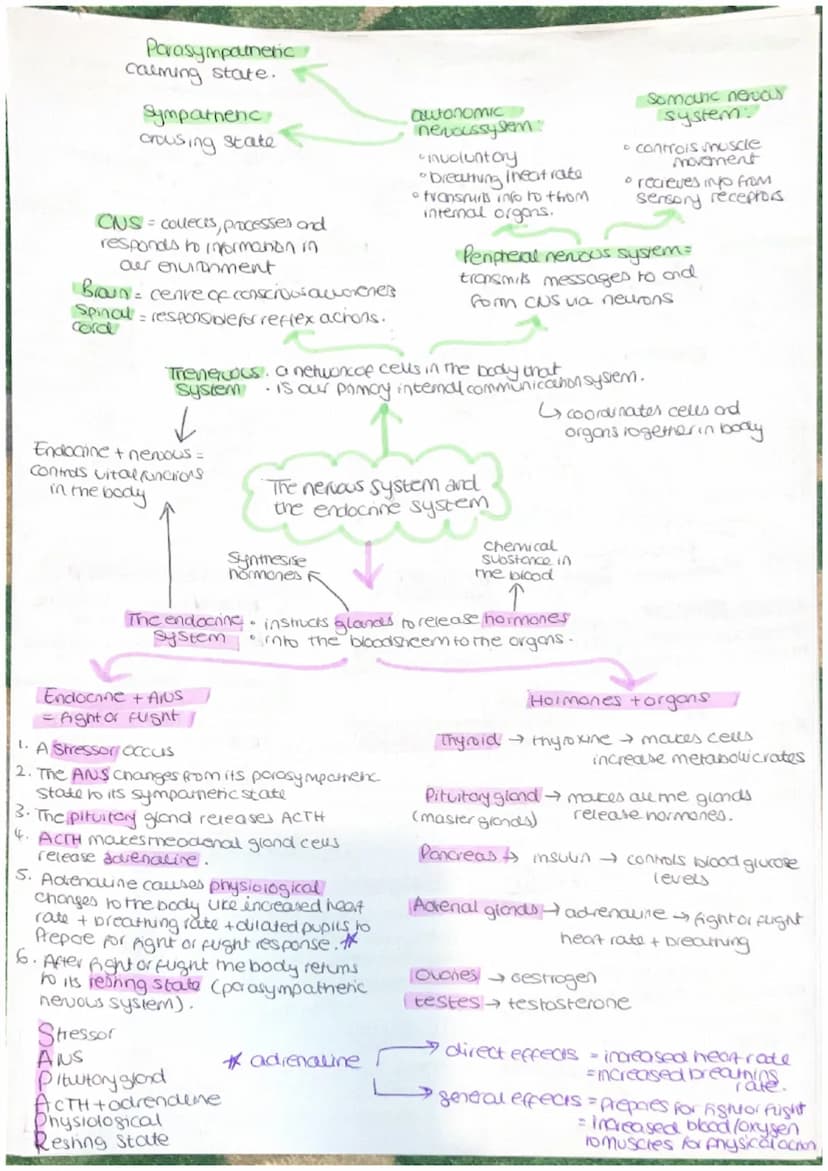 Parasympathetic
calming state.
Sympathetic
arousing state
autonomic
nervous system:
• involuntary
• breathing / heart rate
• transmits info to + from
internal organs.
Somatic nervous
system:
• controls muscle
movement
• recieves info from
sensory receptors
CNS = collects, processes and
responds to information in
our environment
Brain = centre of conscious awareness
Spinal = responsible for reflex actions.
cord
Peripheral nervous system =
transmits messages to and
form CNS via neurons
The nervous • a network of cells in the body that
system • is our primary internal communication system.
↳ coordinates cells and
organs together in body
Endocrine + nervous =
controls vital functions
in the body
The nervous system and
the endocrine system
Synthesise
hormones
chemical
substance in
the blood
The endocrine • instructs glands to release hormones
system • into the bloodstreem to the organs.
Endocrine + ANS
= fight or flight
1. A stressor occurs
2. The ANS changes from its parasympathetic
state to its sympathetic state
3. The pituitary gland releases ACTH
4. ACTH makes the adrenal gland cells
release adrenaline.
5. Adrenaline causes physiological
changes to the body like increased heart
rate + breathing rate + dilated pupils to
Prepare for fight or flight response. *
6. After fight or flight the body returns
to its resting state (parasympathetic
nervous system).
Hormones + organs
Thyroid → thyroxine → makes cells
increase metabolic rates
Pituitary gland → makes all the glands
(master glands) release hormones.
Pancreas → insulin → controls blood glucose
levels
Adrenal glands → adrenaline → fight or flight
heart rate + breathing
Ovaries → oestrogen
testes → testosterone
Stressor
ANS
Pituitary gland
ACTH + adrenaline
Physiological
Resting State
* adrenaline
→ direct effects = increased heart rate
= increased breathing
rate.
→ general effects = prepares for fight or flight
= increased blood/oxygen
to muscles for physical action